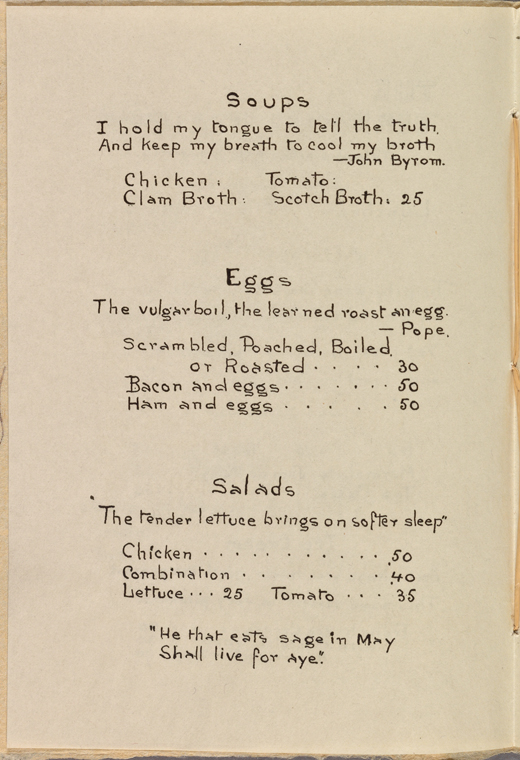 Soups
I hold my tongue to tell the truth,
And keep my breath to cool my broth
—John Byrom.
Chicken : Tomato:
Clam Broth: Scotch Broth: 25
Eggs
The vulgar boil, the learned roast an egg.
— Pope.
Scrambled, Poached, Boiled,
or Roasted . . . . 30
Bacon and eggs . . . . . . 50
Ham and eggs . . . . . 50
Salads
"The tender lettuce brings on softer sleep"
Chicken . . . . . . . . . . . .50
Combination . . . . . . .40
Lettuce . . . 25 Tomato . . . 35
"He that eats sage in May
Shall live for aye."